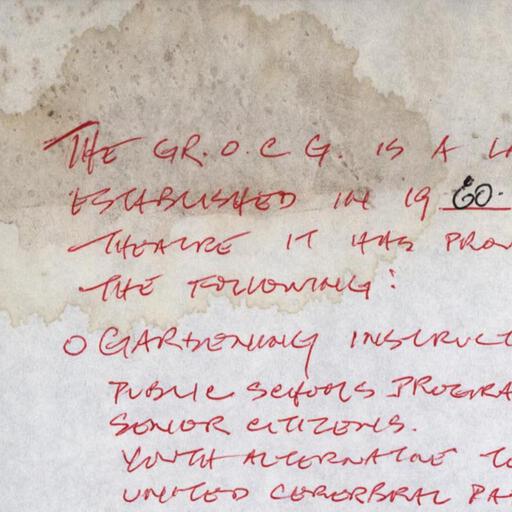 THE GR.O.C G. IS A L
ESTABLISHED IN 19 60.
THEATRE IT HAS PROV
THE FOLLOWING:
O GARDENING INSTRUCT
PUBLIC SCHOOLS PROGRA
SENIOR CITIZENS.
YOUTH ALTERNATIVE TO
UNITED CEREBRAL PA